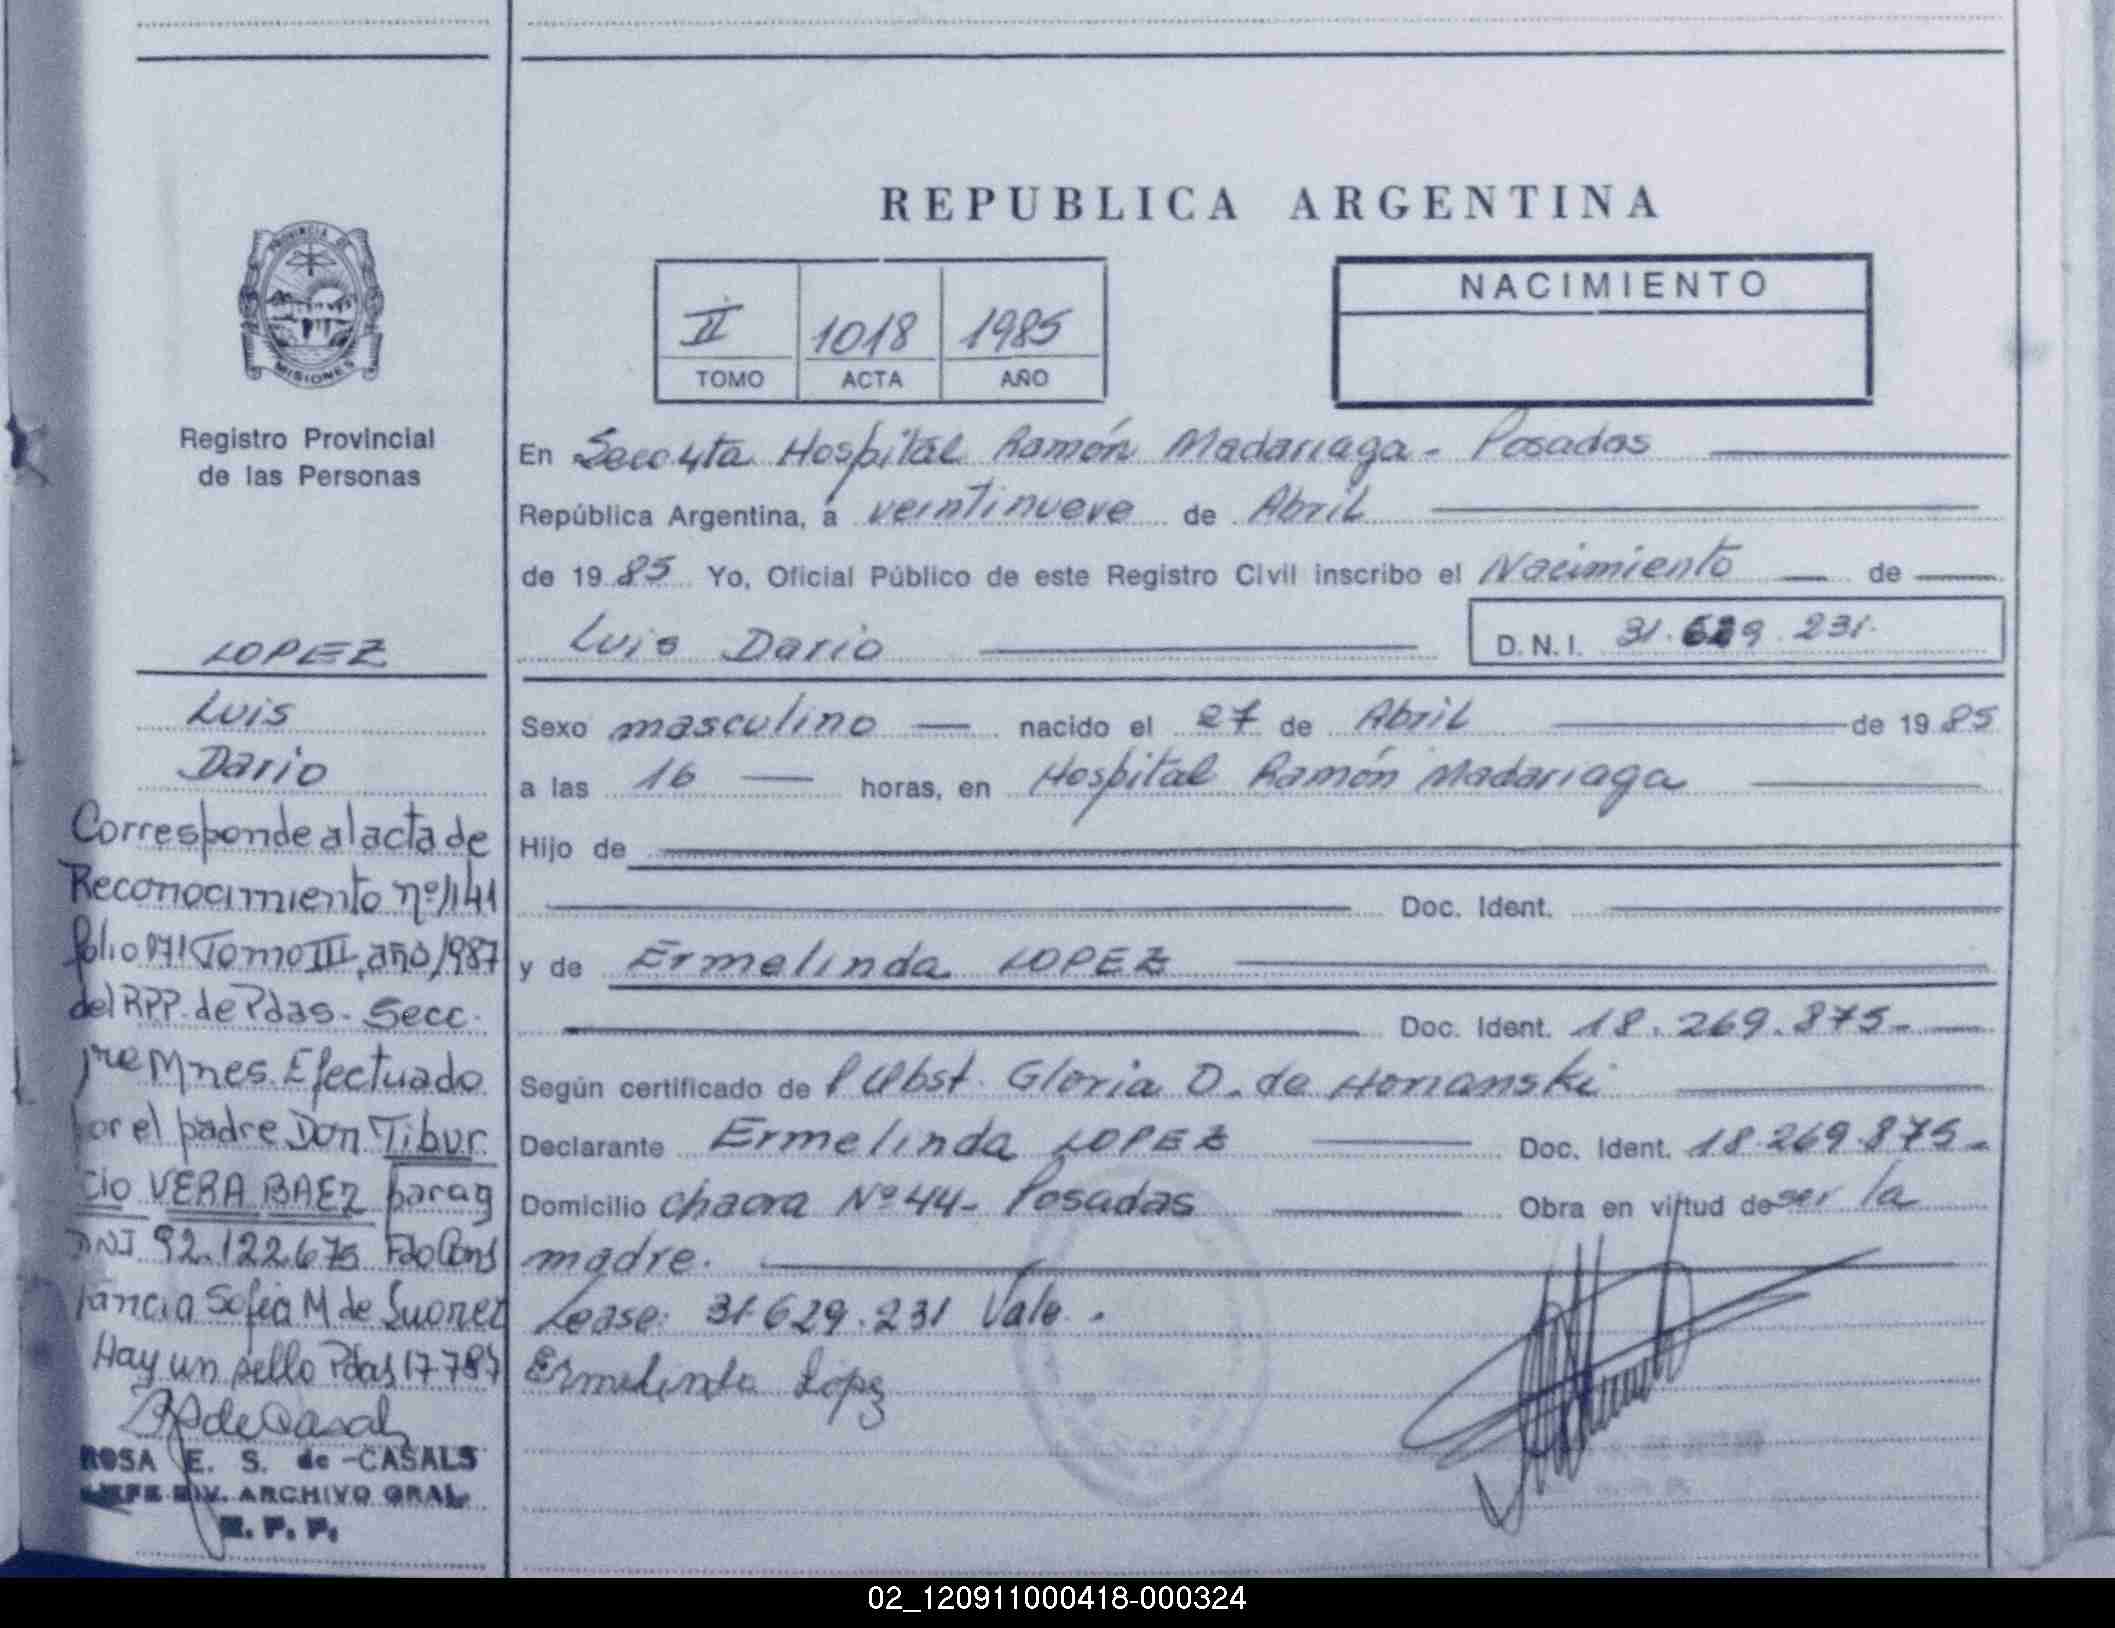 REPUBLICA ARGENTINA
PROVINCIA DE
MISIONES
Registro Provincial
de las Personas
LOPEZ
Luis
Dario
Corresponde al acta de
Reconocimiento nº 1141
folio 171 Tomo III, año 1987
del RPP. de Pdas. Secc.
1re Mnes. Efectuado
por el padre Don Tibur
cio VERA BAEZ parag
DNI 92.122.675 Fdo Cons
tancia Sofia M de Suarez
Hay un sello Pdas 17 7 87
ROSA E. S. de CASALS
JEFE DIV. ARCHIVO GRAL.
R. P. P.
II 1018 1985
TOMO ACTA AÑO
NACIMIENTO
En Secc 4ta Hospital Ramón Madariaga - Posadas
República Argentina, a veintinueve de Abril
de 1985 Yo, Oficial Público de este Registro Civil inscribo el Nacimiento de
Luis Dario D. N. I. 31.629.231
Sexo masculino nacido el 27 de Abril de 1985
a las 16 horas, en Hospital Ramón Madariaga
Hijo de
Doc. Ident.
y de Ermelinda LOPEZ
Doc. Ident. 18.269.875-
Según certificado de Obst. Gloria D. de
Declarante Ermelinda LOPEZ Doc. Ident. 18.269.875-
Domicilio chacra Nº 44- Posadas Obra en virtud de ser la
madre.
Lease: 31.629.231 Vale.
Ermelinda Lopez
02_120911000418-000324